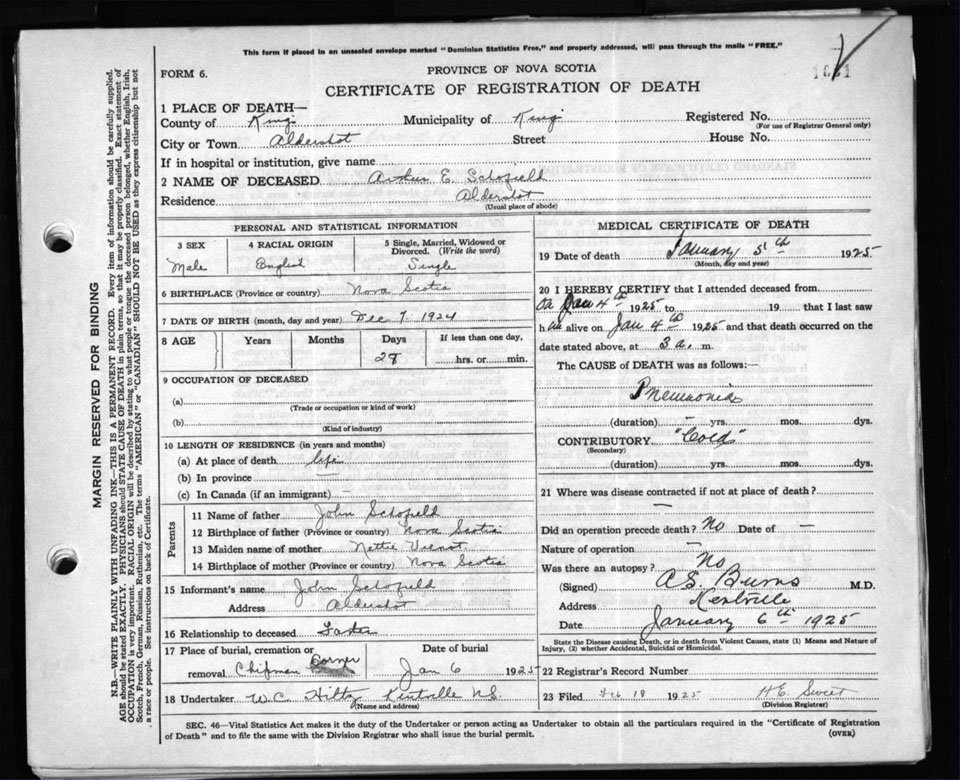 This form if placed in an unsealed envelope marked "Dominion Statistics Free," and properly addressed, will pass through the mails "FREE."
FORM 6.
PROVINCE OF NOVA SCOTIA
CERTIFICATE OF REGISTRATION OF DEATH
1 PLACE OF DEATH—
County of Kings Municipality of Kings Registered No.
(For use of Registrar General only)
City or Town Aldershot Street House No.
If in hospital or institution, give name
2 NAME OF DECEASED Arthur E. Schofield
Residence Aldershot
(Usual place of abode)
PERSONAL AND STATISTICAL INFORMATION
3 SEX 4 RACIAL ORIGIN 5 Single, Married, Widowed or Divorced. (Write the word)
Male English Single
6 BIRTHPLACE (Province or country) Nova Scotia
7 DATE OF BIRTH (month, day and year) Dec 7 1924
8 AGE Years Months Days If less than one day,
28 hrs. or min.
9 OCCUPATION OF DECEASED
(a)
(Trade or occupation or kind of work)
(b)
(Kind of industry)
10 LENGTH OF RESIDENCE (in years and months)
(a) At place of death life
(b) In province
(c) In Canada (if an immigrant) —
Parents
11 Name of father John Schofield
12 Birthplace of father (Province or country) Nova Scotia
13 Maiden name of mother Nettie
14 Birthplace of mother (Province or country) Nova Scotia
15 Informant's name John Schofield
Address Aldershot
16 Relationship to deceased Father
17 Place of burial, cremation or removal Chipman Corner
Date of burial Jan 6 1925
18 Undertaker W.C. Hiltz Kentville N.S.
(Name and address)
MEDICAL CERTIFICATE OF DEATH
19 Date of death January 5th 1925
(Month, day and year)
20 I HEREBY CERTIFY that I attended deceased from
on Jan 4th 1925 to 19 that I last saw
h im alive on Jan 4th 1925 and that death occurred on
date stated above, at 3 a. m.
The CAUSE of DEATH was as follows:—
Pneumonia
(duration) yrs. mos. dys.
CONTRIBUTORY "Cold"
(Secondary)
(duration) yrs. mos. dys.
21 Where was disease contracted if not at place of death?
—
Did an operation precede death? No Date of —
Nature of operation —
Was there an autopsy? No
(Signed) A.S. Burns M.D.
Address Kentville
Date January 6th 1925
State the Disease causing Death, or in death from Violent Causes, state (1) Means and Nature of Injury, (2) whether Accidental, Suicidal or Homicidal.
22 Registrar's Record Number
23 Filed Feb 18 1925 H.E. Sweet
(Division Registrar)
SEC. 46—Vital Statistics Act makes it the duty of the Undertaker or person acting as Undertaker to obtain all the particulars required in the "Certificate of Registration
of Death" and to file the same with the Division Registrar who shall issue the burial permit. (OVER)
MARGIN RESERVED FOR BINDING
N.B.—WRITE PLAINLY WITH UNFADING INK—THIS IS A PERMANENT RECORD. Every item of information should be carefully supplied.
AGE should be stated EXACTLY. PHYSICIANS should STATE CAUSE OF DEATH in plain terms, so that it may be properly classified. Exact statement of
OCCUPATION is very important. RACIAL ORIGIN will be described by stating to what people or tongue the deceased person belonged, whether English, Irish,
Scotch, French, German, Russian, Ruthenian, etc. The terms "AMERICAN" or "CANADIAN" SHOULD NOT BE USED as they express citizenship but not
a race or people. See instructions on back of Certificate.